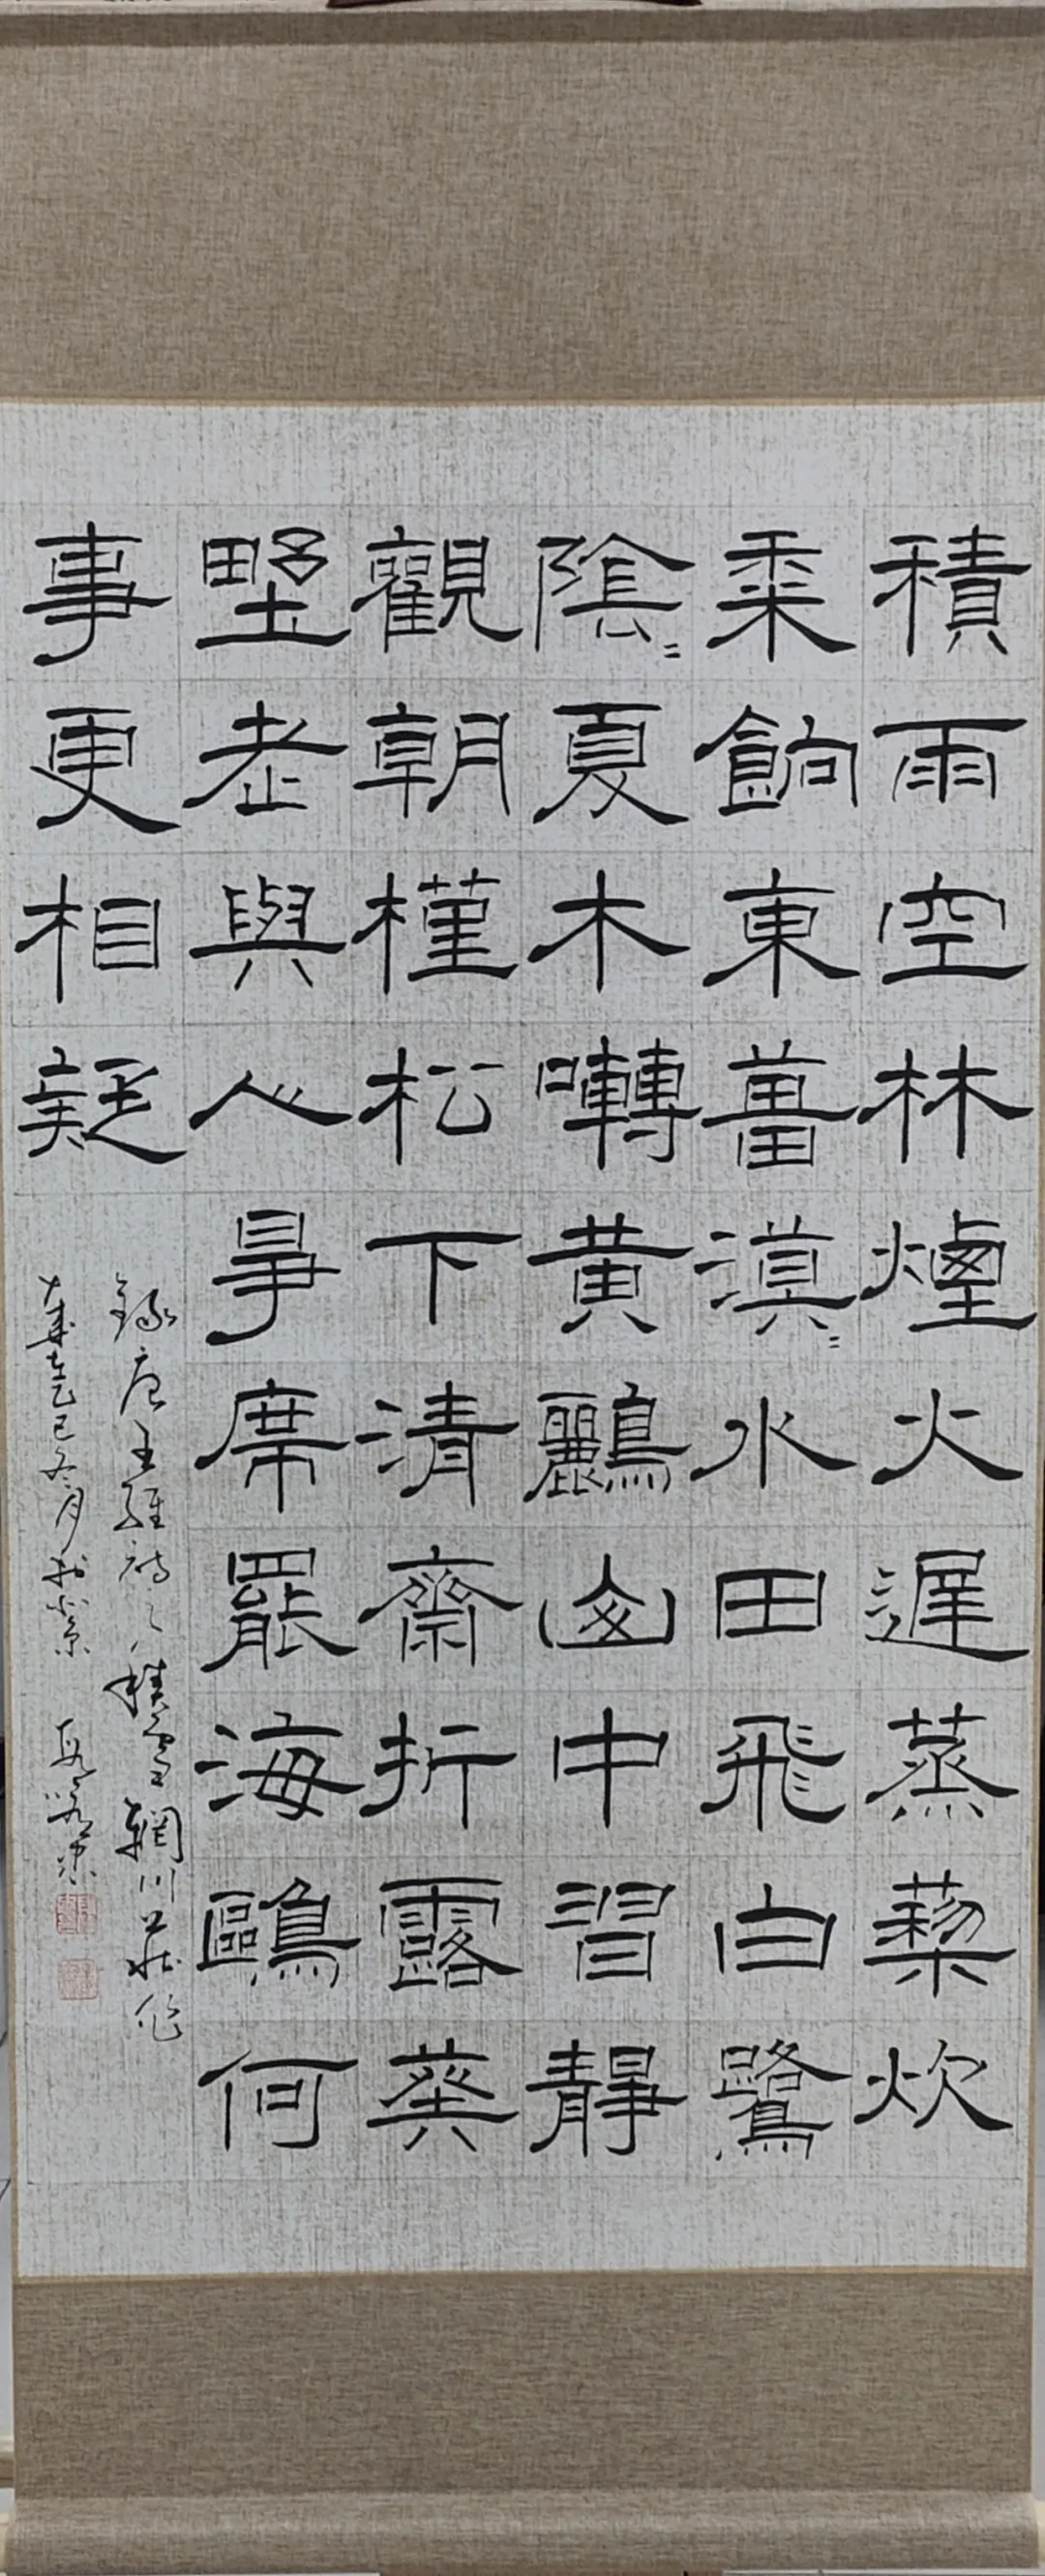 積雨空林煙火遲蒸藜炊
黍餉東菑漠〻水田飛白鷺
陰〻夏木囀黃鸝山中習靜
觀朝槿松下清齋折露葵
野老與人爭席罷海鷗何
事更相疑
錄唐王維詩之八積雨輞川莊作
歲在乙巳冬月於北京